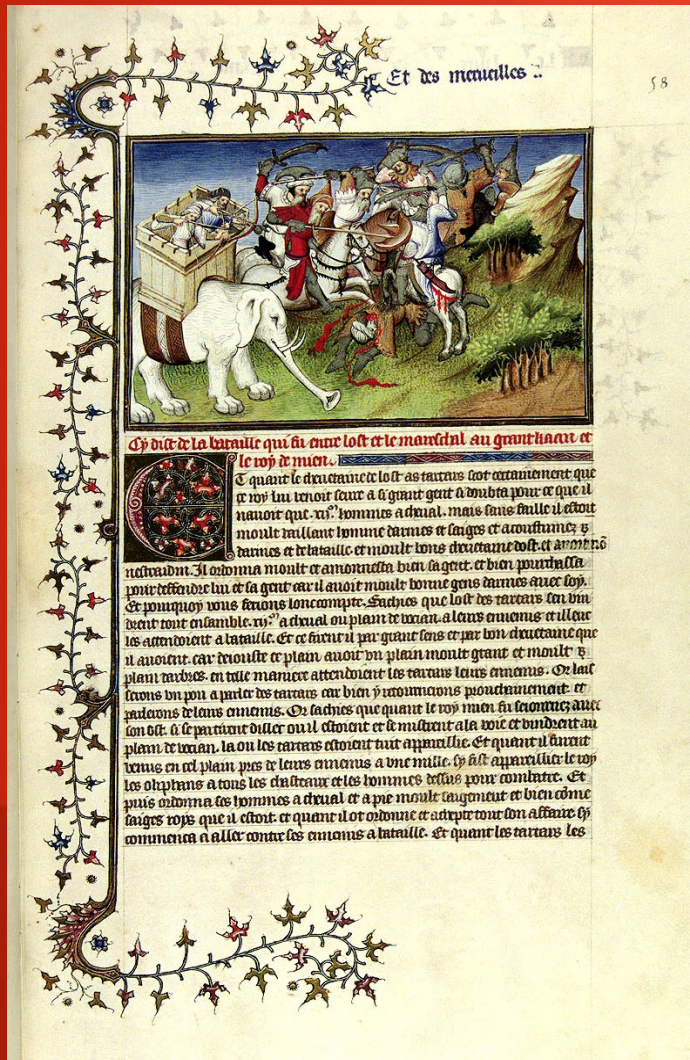 Et des merueilles :.
58
Cy dist de la bataille qui fu entre lost et le mareschal au grant kaan et
le roy de mien.
Et quant le cheuetaine de lost as tartars scot certainement que
ce roy lui venoit seure a si grant gent si doubta pour ce que il
nauoit que .xij.m hommes a cheual. mais sans faille il estoit
moult vaillant homme darmes et saiges et acoustumez
darmes et de bataille et moult bons cheuetaine dost. et auoit nō
nestraidin. Il ordonna moult et amonnesta bien sa gent. et bien pourchassa
pour deffendre lui et sa gent car il auoit moult bonne gens darmes auec soy.
Et pourquoy vous feroions lonc compte. Sachies que lost des tartars sen vin
drent tout ensamble .xij.m a cheual ou plain de vocian. a leurs ennemis et illeuc
les attendoient a bataille. Et ce firent il par grant sens et par bon cheuetaine que
il auoient. car deiouste ce plain auoit vn plain moult grant et moult
plain darbres. en telle maniere attendoient les tartars leurs ennemis. Or lais
serons vn pou a parler des tartars car bien y retournerons prouchainement. et
parlerons de leurs ennemis. Or sachies que quant le roy mien fu seiournez auec
son ost. si se partirent diller ou il estoient et se mistrent a la voie et vindrent au
plain de vocian. la ou les tartars estoient tuit appareillie. Et quant il furent
venus en cel plain pres de leurs ennemis a vne mille. sy fist appareillier le roy
les oliphans a tous les chasteaux et les hommes dessus pour combatre. Et
puis ordonna ses hommes a cheual et a pie moult saigement et bien cōme
saiges roys que il estoit. et quant il ot ordonne et adrepte tout son affaire sy
commenca a aller contre ses ennemis a bataille. Et quant les tartars les